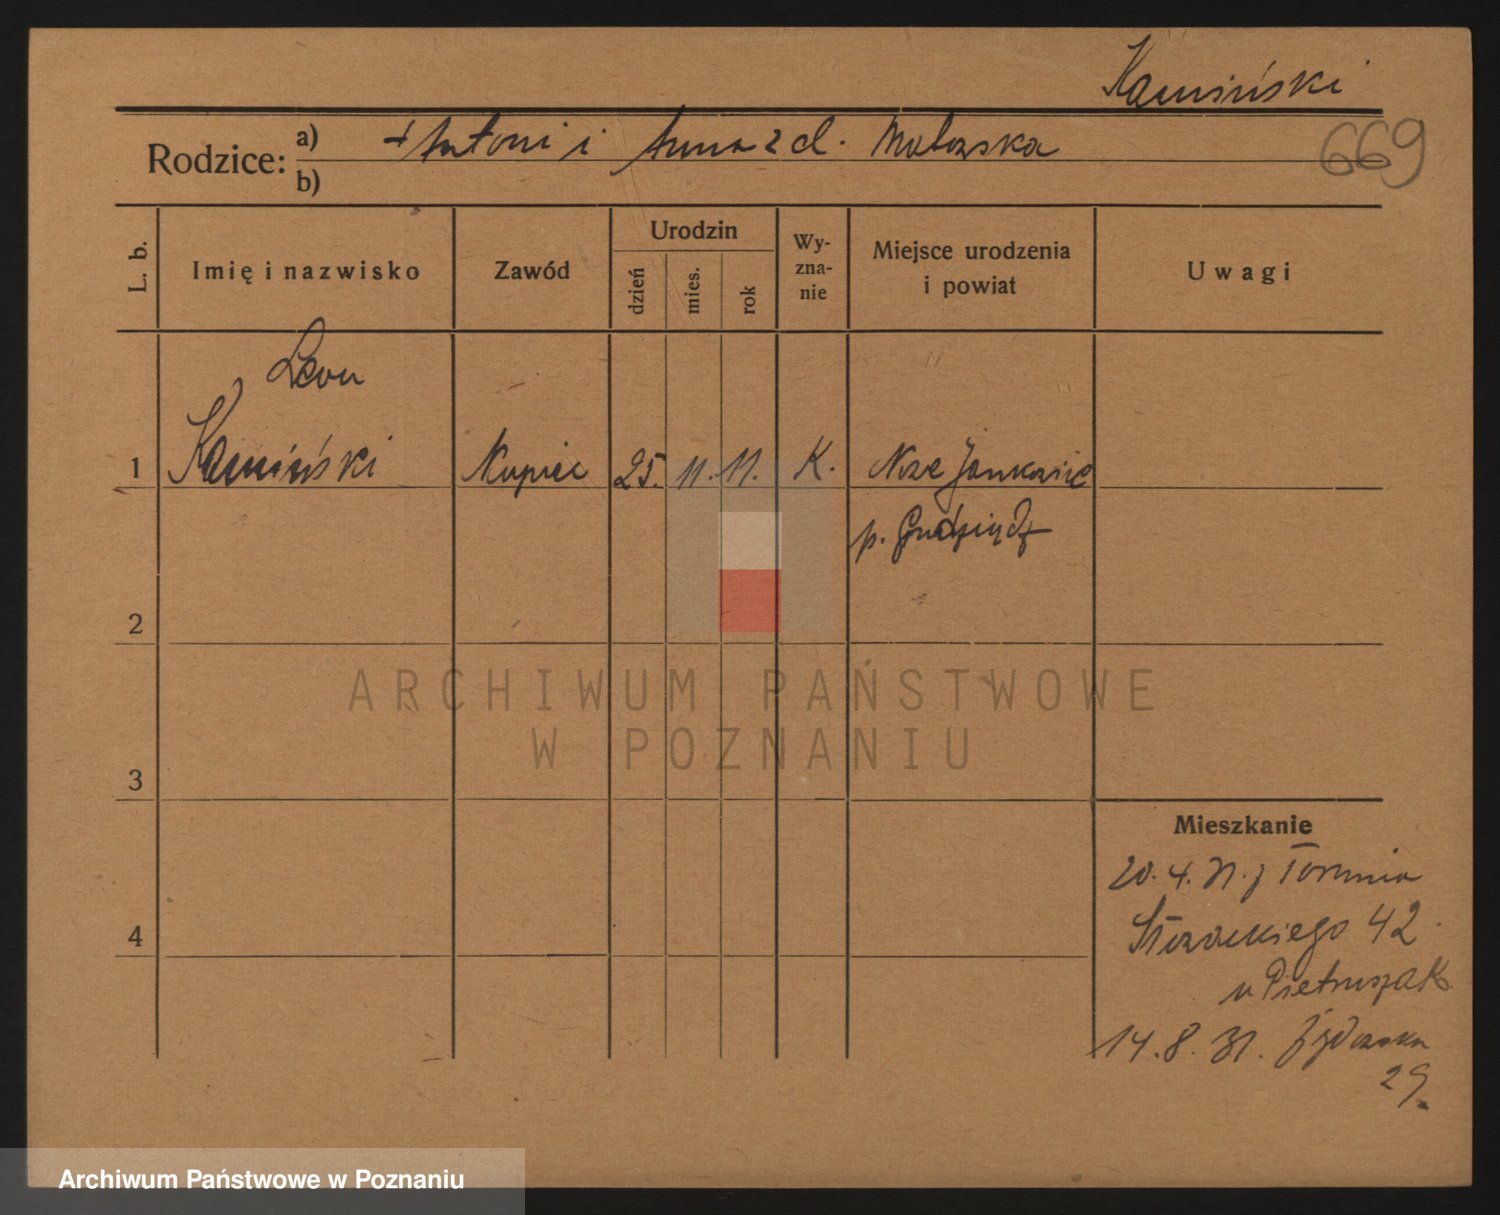 Kamiński
Rodzice: a) Antoni i Anna z d.
669
b)
L. b.
Imię i nazwisko
Zawód
Urodzin
dzień
mies.
rok
Wy-
zna-
nie
Miejsce urodzenia
i powiat
Uwagi
Leon
1 Kamiński Kupiec 25. 11. 11. K. Nowe Jankowic
p. Grudziądz
2
ARCHIWUM PAŃSTWOWE
W POZNANIU
3
Mieszkanie
20. 4. 31. z Torunia
4
Słowackiego 42
u Pietruszak
14. 8. 31. Żydowska
29.
Archiwum Państwowe w Poznaniu